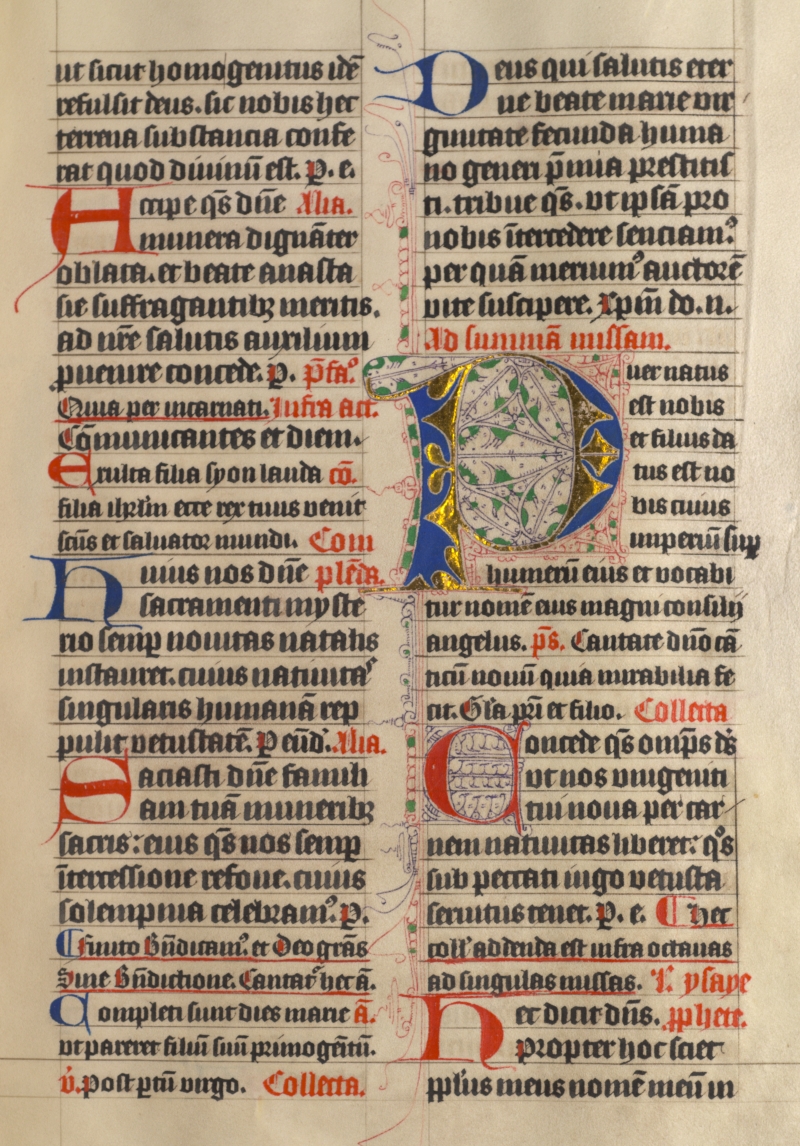 ut sicut homogenitus idē
refulsit deus. sic nobis hec
terrena substancia confe
rat quod diuinū est. P. e.
Accipe qs̄ dn̄e Alia.
munera dignāter
oblata. et beate anasta
sie suffragantibꝫ meritis.
ad nr̄e salutis auxilium
ꝓuenire concede. P. p̄fa᷒.
Quia per incarnati. Infra act.
Cōmunicantes et diem.
Exulta filia syon lauda cō.
filia ihrlm̄ ecce rex tuus venit
sc̄us et saluator mundi. Com
Huius nos dn̄e plēda.
sacramenti myste
rio semꝑ nouitas natalis
instauret. cuius natiuitas
singularis humanā rep
pulit vetustatē. P eūd. Alia.
Saciasti dn̄e famili
am tuā muneribꝫ
sacris: eius qs̄ nos semꝑ
īteruessione refoue. cuius
solempnia celebram᷒. P.
Finito Bn̄dicam᷒. et Deo grās
Sine Bn̄dictione. Cantat᷒ hec ā.
Completi sunt dies marie ā.
vt pareret filiū suū primogēitū.
v̄. Post ꝑtū virgo. Collecta.
Deus qui salutis eter
ne beate marie vir
ginitate fecunda huma
no generi p̄mia prestitis
ti. tribue qs̄. vt ipsā pro
nobis ītercedere senciam᷒
per quā meruim᷒ auctorē
vite suscipere. xp̄m do. n.
Ad summā missam.
Puer natus
est nobis
et filius da
tus est no
bis cuius
imperiū suꝑ
humerū eius et vocabi
tur nomē eius magni consilij
angelus. p̄s. Cantate dn̄o cā
ticū nouū quia mirabilia fe
cit. Gl̄a pr̄i et filio. Collecta
Concede qs̄ omp̄s ds̄
vt nos vnigeniti
tui noua per car
nem natiuitas liberet: qͦs
sub peccati iugo vetusta
seruitus tenet. P. e. Hec
coll᷒ addenda est infra octauas
ad singulas missas. L. ysaye
Hec dicit dn̄s. ꝓphete.
Propter hoc sciet
ppl̄us meus nomē meū in